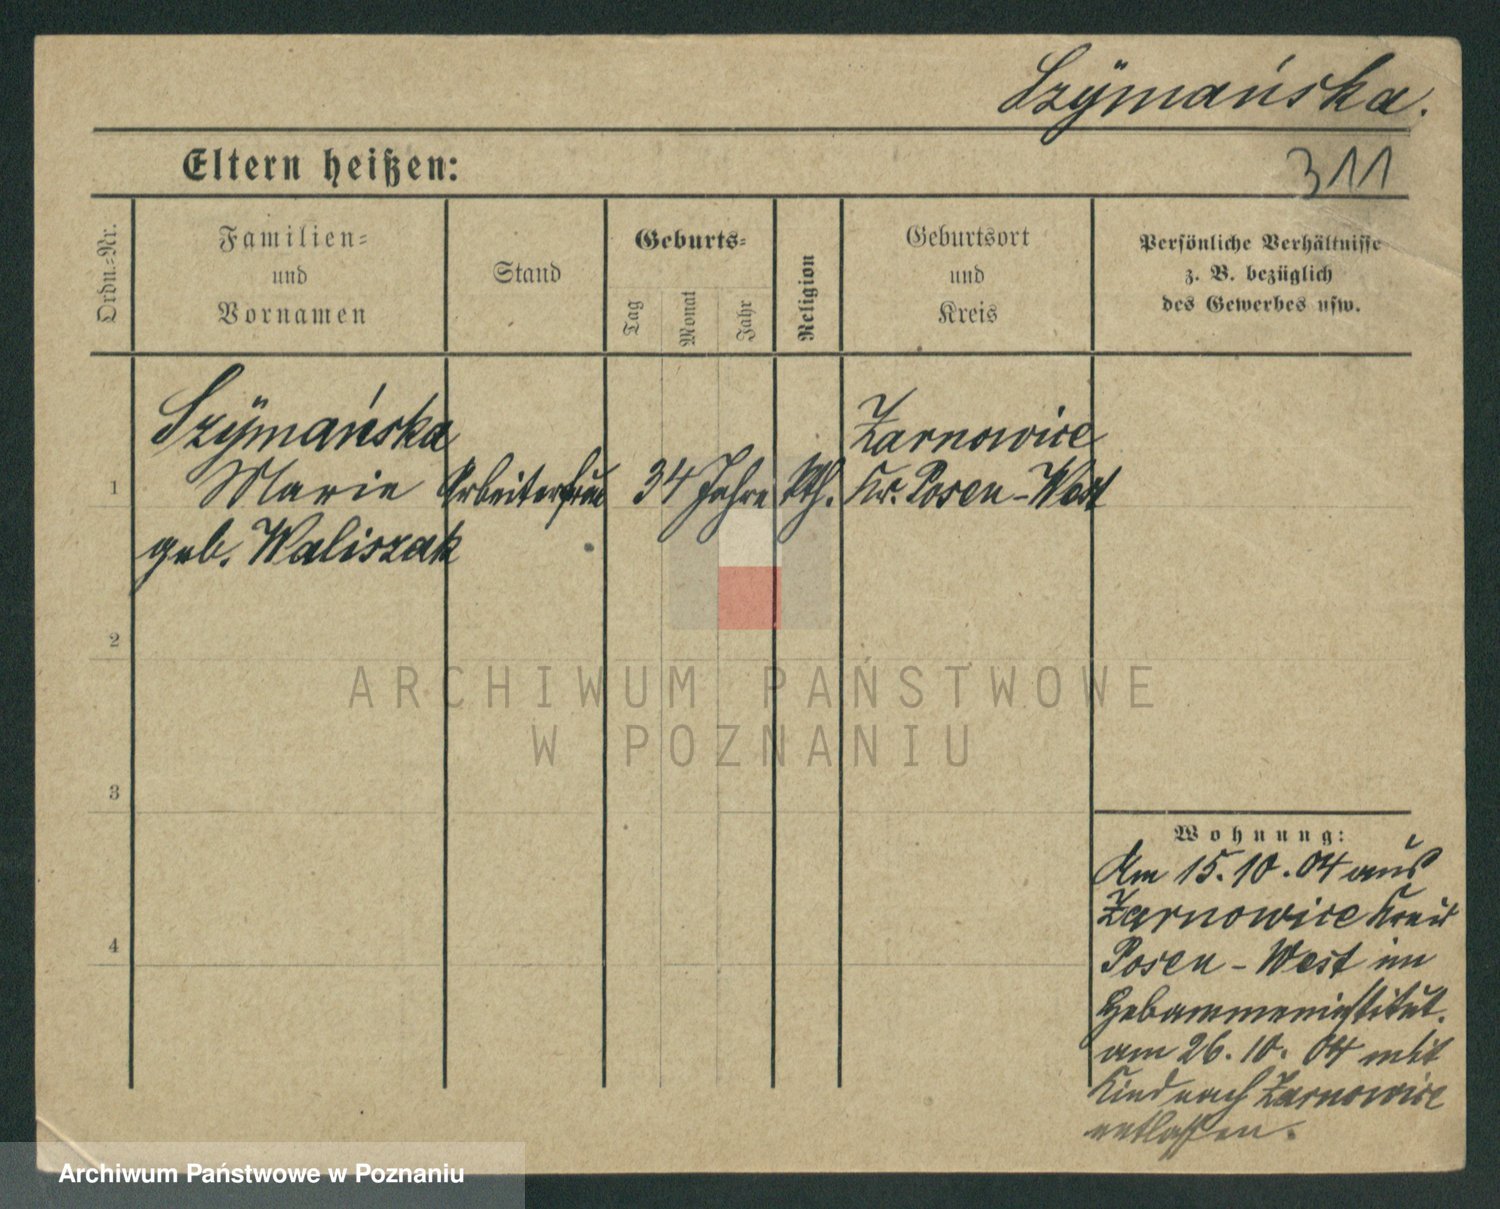 Szÿmańska.
Eltern heißen:
311
Ordn.-Nr.
Familien-
und
Vornamen
Stand
Geburts-
Tag
Monat
Jahr
Religion
Geburtsort
und
Kreis
Persönliche Verhältnisse
z. B. bezüglich
des Gewerbes usw.
Szÿmańska
Marie
geb. Waliszak
1
Arbeiterfrau
34 Jahre
kth.
Zarnowice
Kr. Posen-West
2
3
4
ARCHIWUM PAŃSTWOWE
W POZNANIU
Wohnung:
Am 15.10.04 aus
Zarnowice Kreis
Posen-West im
Hebammeninstitut.
am 26.10.04 mit
Kind nach Zarnowice
entlassen.
Archiwum Państwowe w Poznaniu